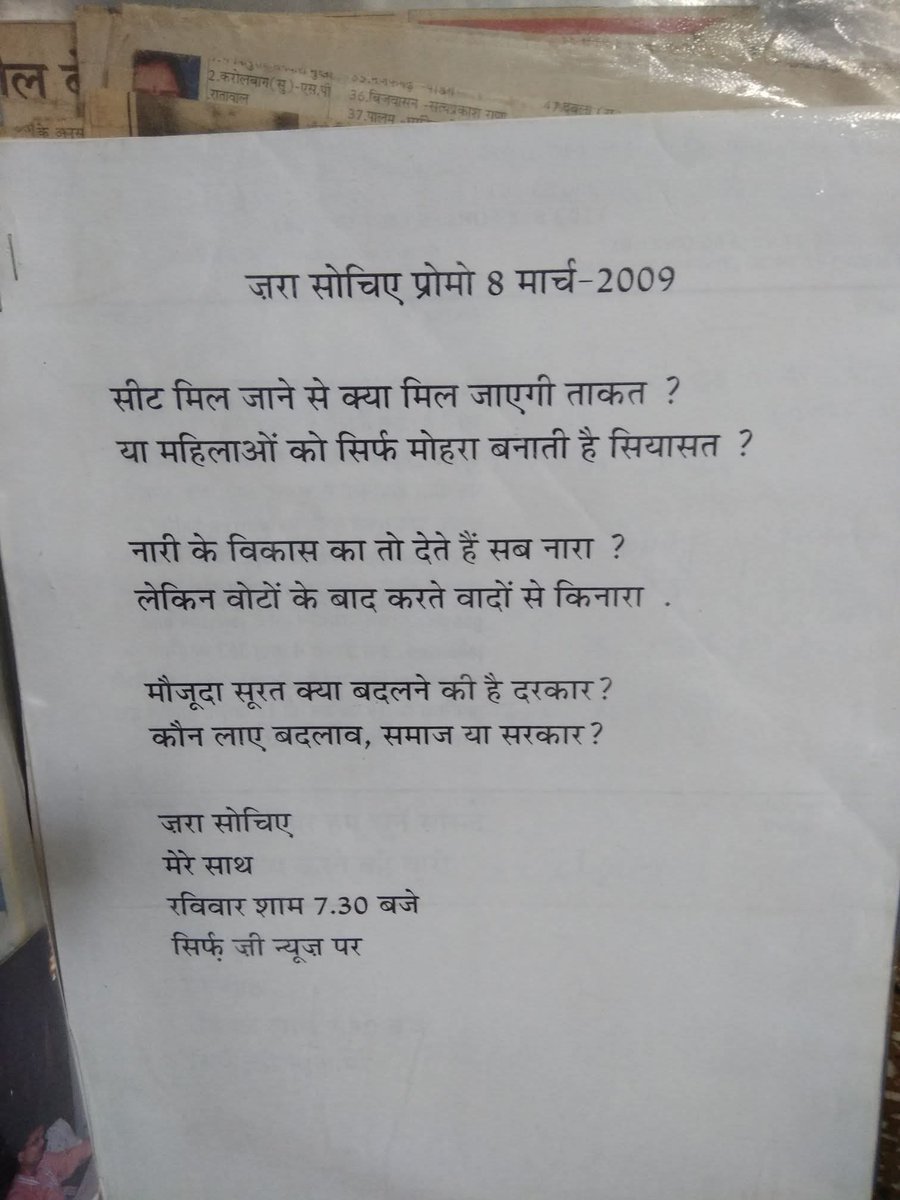 2.करोलबाग(सु)-एस.पी
रातावाल
36.बिजवासन -सत्यप्रकाश राणा
37.पालम
ज़रा सोचिए प्रोमो 8 मार्च-2009
सीट मिल जाने से क्या मिल जाएगी ताकत ?
या महिलाओं को सिर्फ मोहरा बनाती है सियासत ?
नारी के विकास का तो देते हैं सब नारा ?
लेकिन वोटों के बाद करते वादों से किनारा .
मौजूदा सूरत क्या बदलने की है दरकार?
कौन लाए बदलाव, समाज या सरकार?
ज़रा सोचिए
मेरे साथ
रविवार शाम 7.30 बजे
सिर्फ़ ज़ी न्यूज़ पर